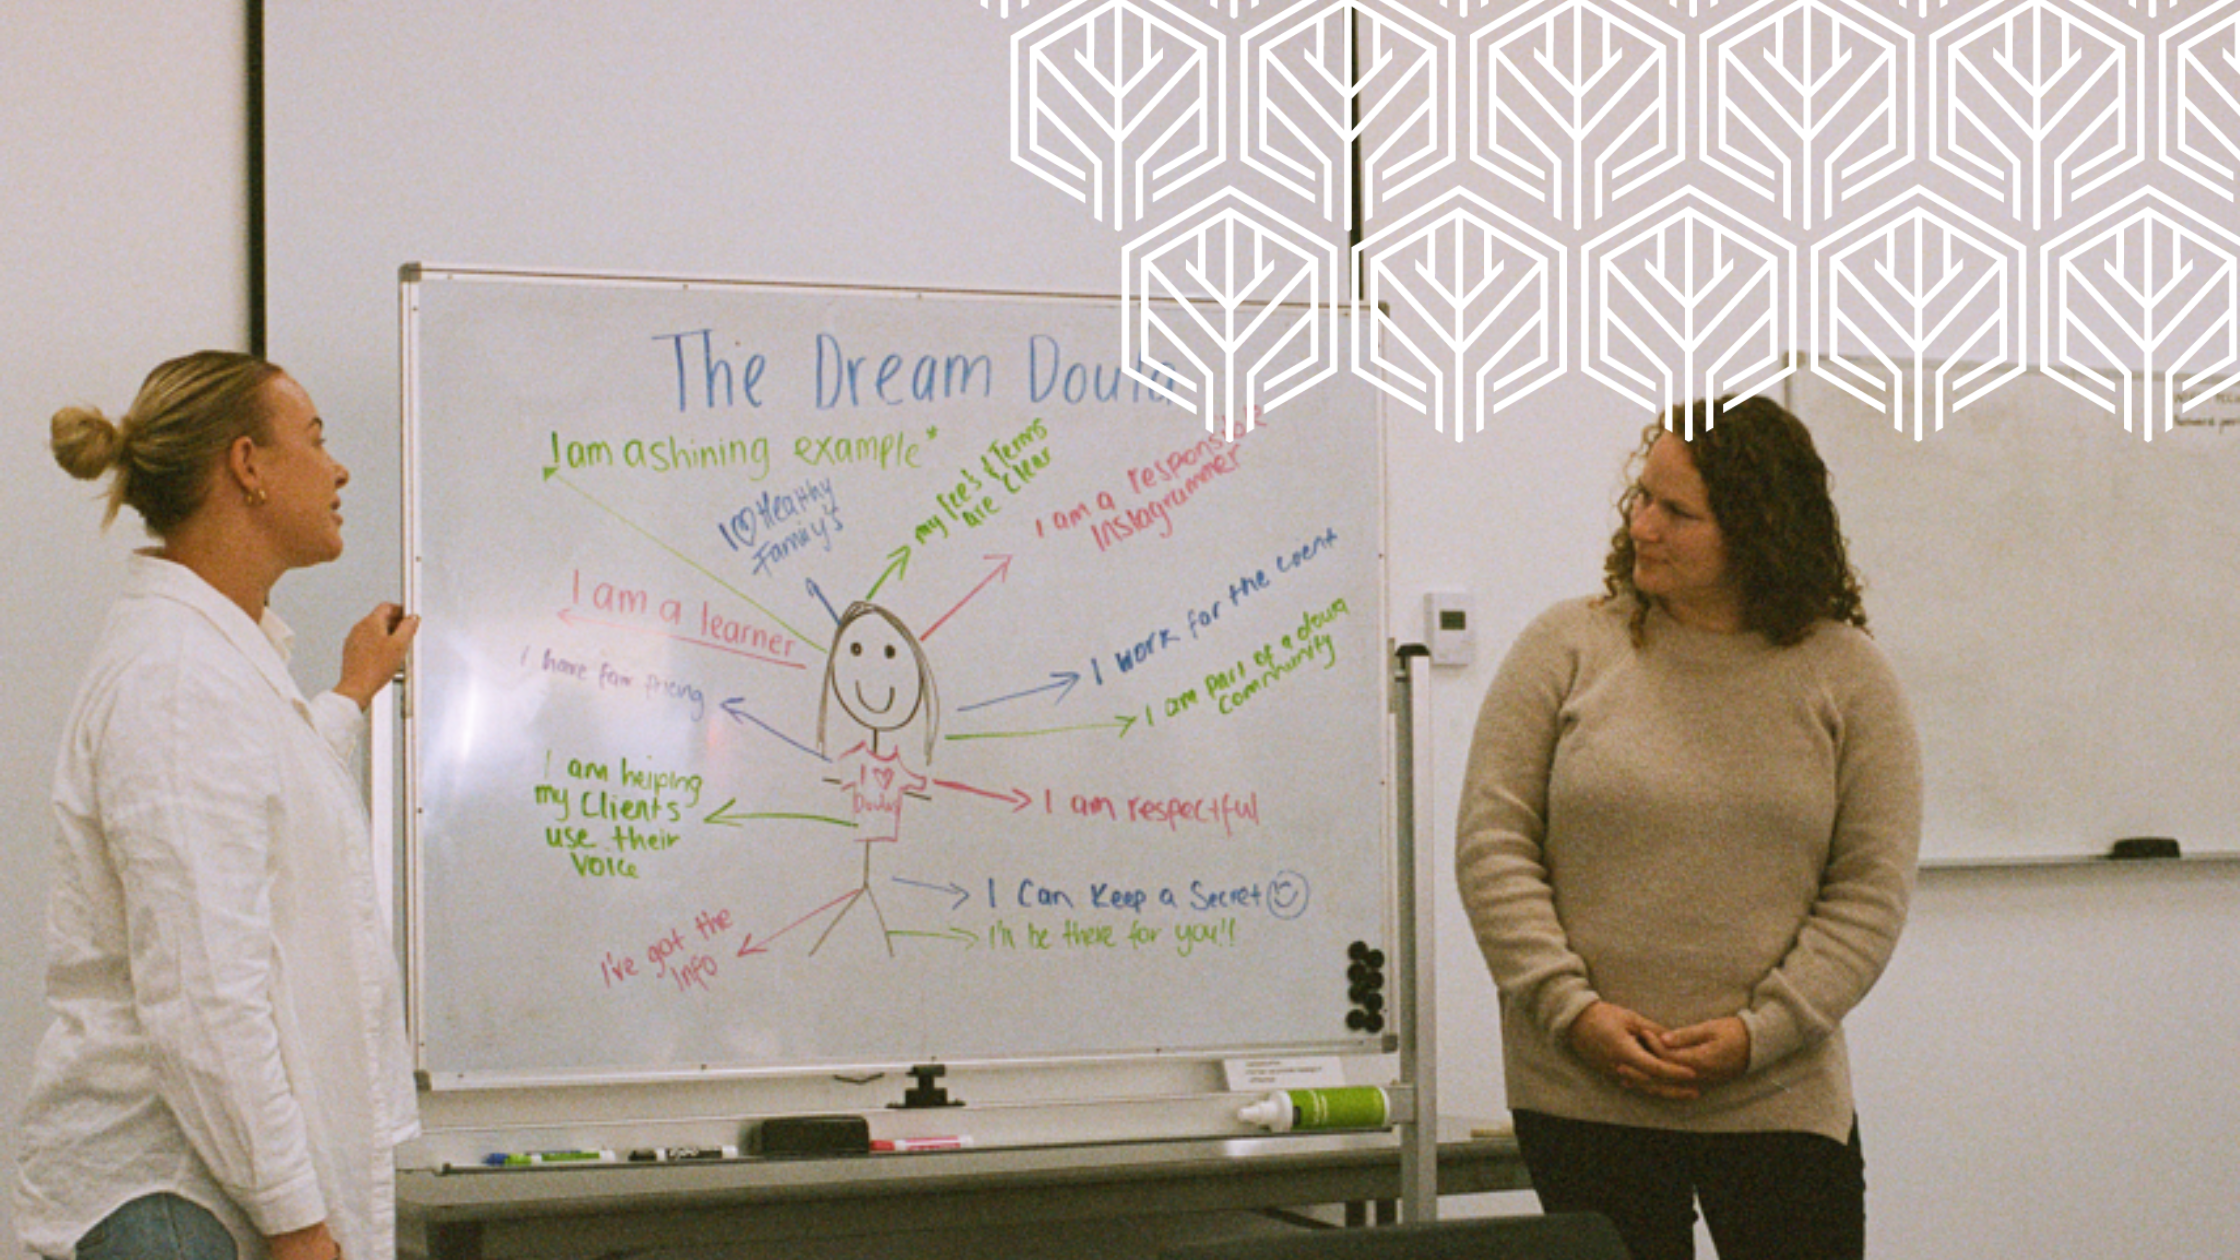 The Dream Doula
I am a shining example*
I ♡ Healthy
Family's
my fee's & Terms
are clear
I am a responsible
Instagrammer
I am a learner
I have fair pricing
I work for the client
I am part of a doula
community
I am helping
my clients
use their
voice
I ♡
Doulas
I am respectful
I Can Keep a Secret ☺
I'll be there for you!!
I've got the
info